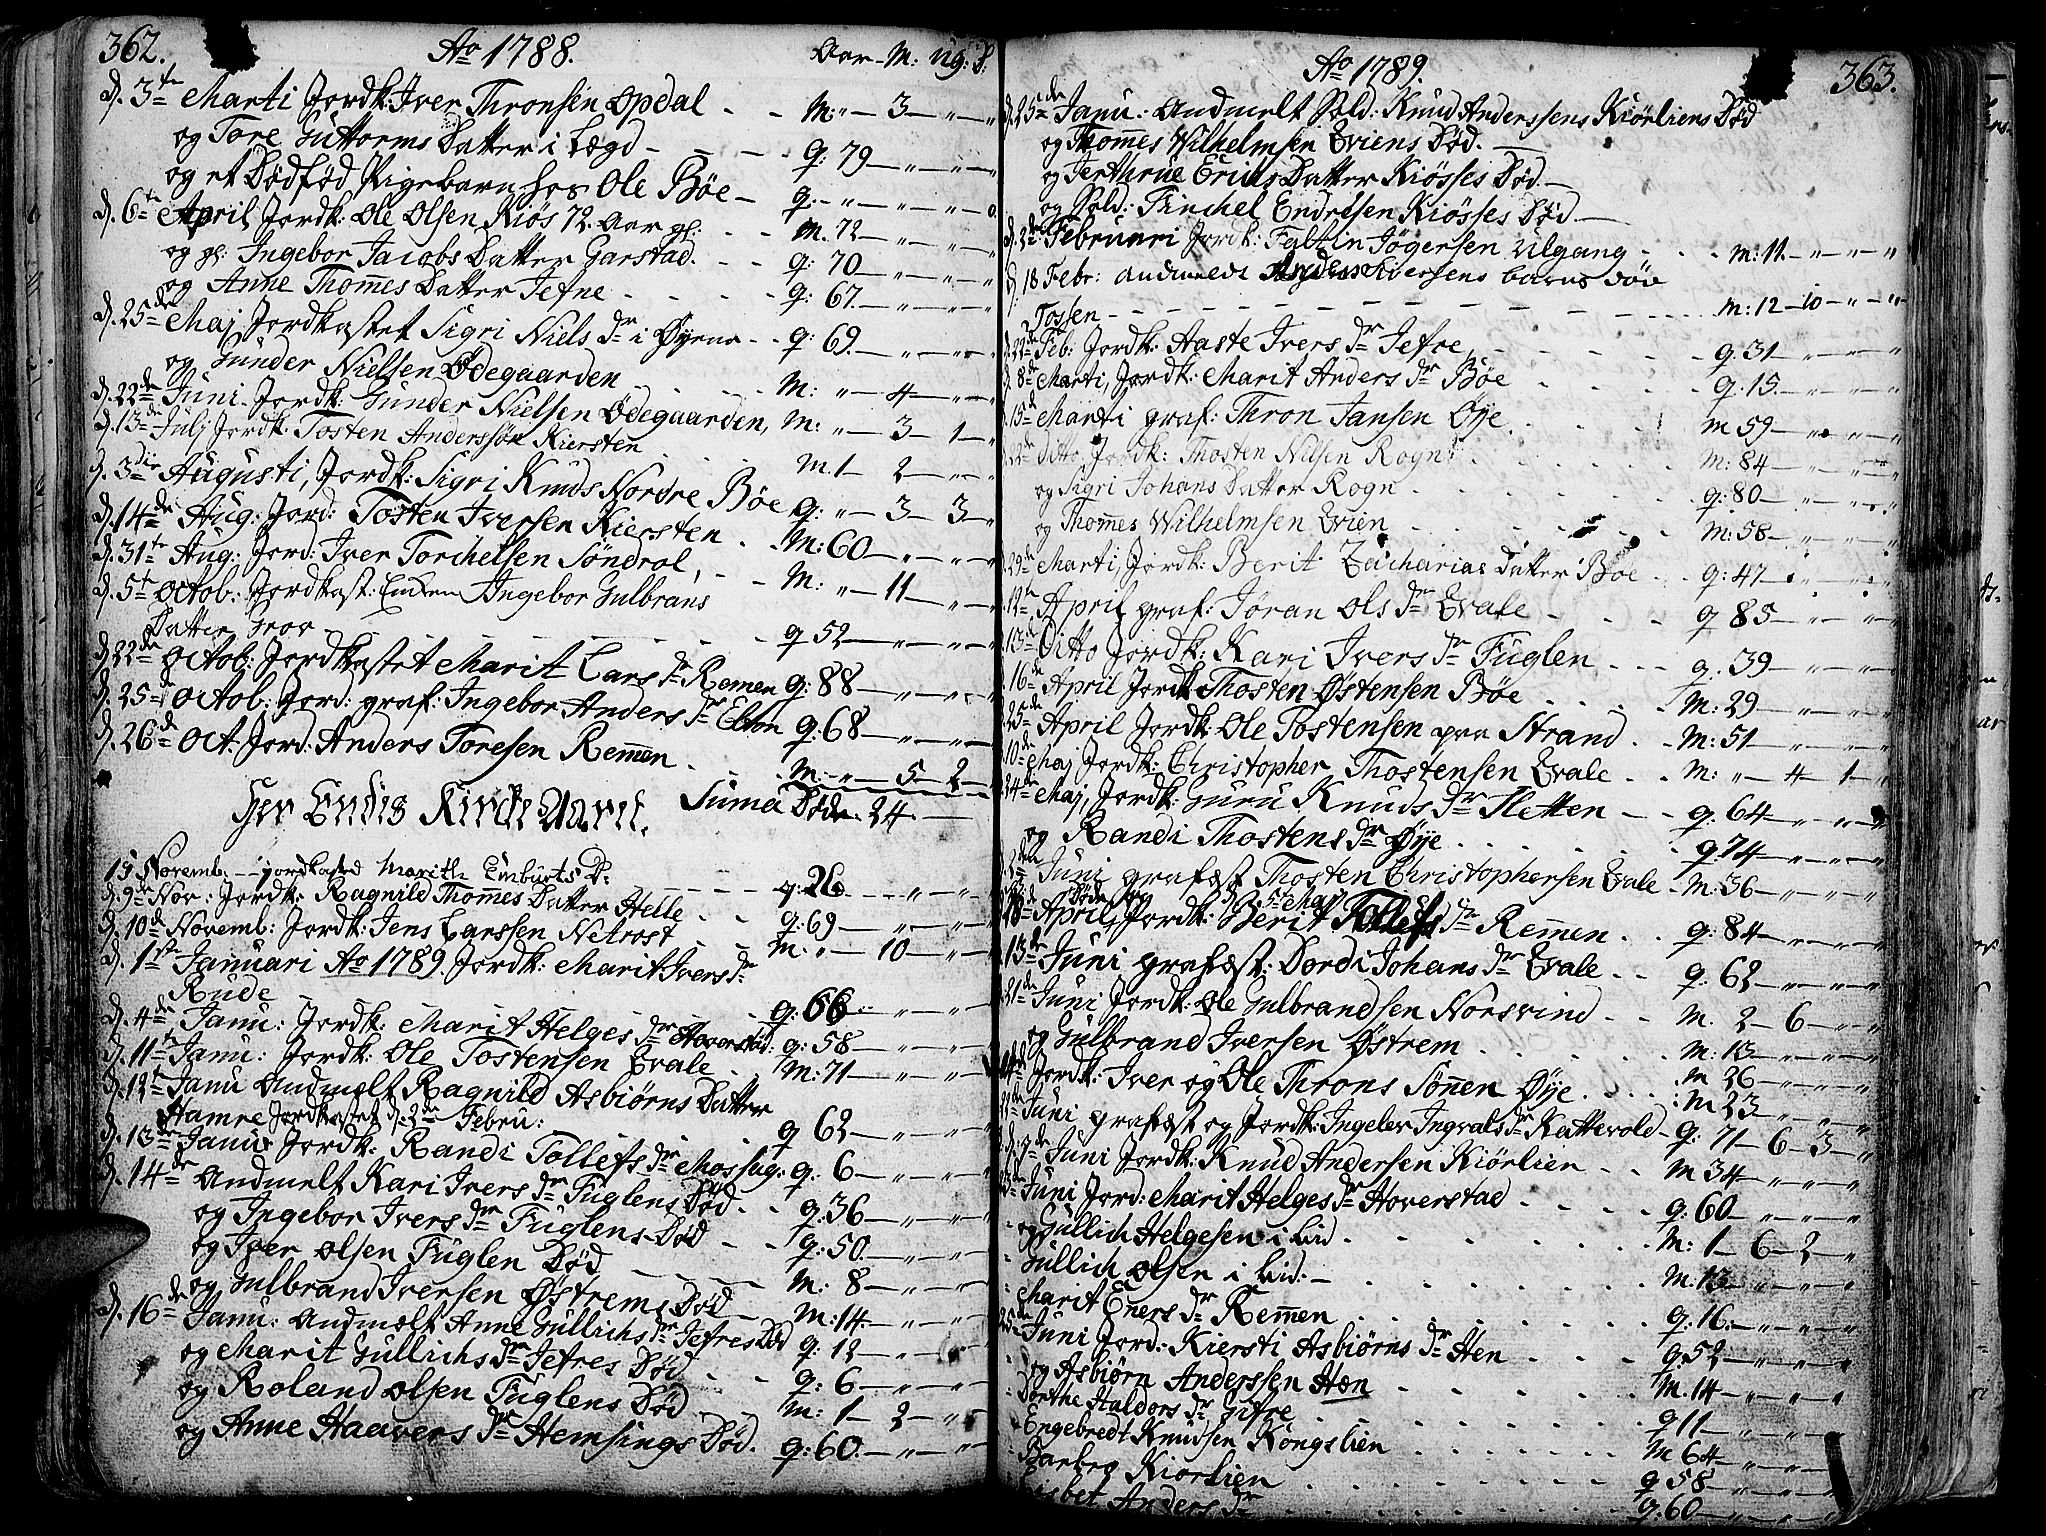 362.
Ao 1788.
Aar - M: ug: d:
d. 3te Marti Jordk: Iver Thronsen Opdal - - M: „ 3 „ „
og Tore Guttorms Datter i Lægd - - - - q: 79 „ „ „
og et Dødfød Pigebarn hos Ole Bøe - q. „ „ „ 0
d. 6te April Jordk: Ole Olsen Kiøs 72 Aar gl: - - M. 72 „ „ „
og gl: Ingebor Jacobs Datter Garstad. - - q: 70 „ „ „
og Anne Thomes Datter Jefne - - - - q: 67. „ „ „
d. 25de Maj Jordkastet Sigri Niels Dr i Øyene - - q: 69. „ „ „
og Gunder Nielsen Ødegaarden - - - - M: „ 4 „ „
d. 22de Juni Jordk: Gunder Nielsen Ødegaarden, M: „ 3 1 „
d. 13de Julj Jordk: Tosten Anderssøn Kiersten - - - M. 1 2 „ „
d. 3die Augusti, Jordk: Sigri Knuds Nordre Bøe q: „ 3 3 „
d. 14de Aug: Jord: Tosten Iversen Kiersten - - M: 60 „ „ „
d. 31te Aug: Jord: Iver Torchelsen Søndrol, - - M: „ 11 „ „
d. 5te Octob: Jordkast: Enken Angebor Gulbrans
Datter Grov - - - - - - q 52 „ „ „
d. 22de Octob: Jordkastet Marit Lars Dr Remen q: 88 „ „ „
d. 25de Octob: Jord: graf: Ingebor Anders Dr Elton q: 68 „ „ „
d. 26de Oct. Jord: Anders Toresen Remen - - M: „ 5 2
Her Endis Kirke Aaret. Suma Døde. 24.
15 Novemb: jordkasted Marith Emburts D: - - - q: 26 „ „ „
d. 9de Nov: Jordk: Ragnild Thomes Datter Helle - - q: 69 „ „ „
d. 10de Novemb: Jordk: Jens Larssen Neterost - - M: „ 10 „ „
d. 1ste Januari Ao 1789. Jordk: Marit Ivers Dr
Rude - - - - - q: 66 „ „ „
d. 4de Janu: Jordk: Marit Helges Dr Hoverstad: q: 58 „ „ „
d. 11te Janu: Jordk: Ole Tostensen Qvale - - M: 71 „ „ „
d. 12te Janu Andmelt Ragnild Asbiørns Datter
Hamre Jordkastet d: 2den Febru: - - - q 62 „ „ „
d. 13de Janu: Jordk: Randi Tollefs Dr Mossug: q: 6 „ „ „
d. 14de Andmelt Kari Ivers Dr Fuglens Død - - q: 36 „ „ „
og Ingebor Ivers Dr Fuglens Død - - q: 50 „ „ „
og Iver Olsen Fuglen Død - - - - M: 8 „ „ „
og Gulbrand Iversen Østrems Død - M: 14 „ „ „
d. 16de Janu: Andmelt Anne Gullichs Dr Jefres Død q: 12 „ „ „
og Marit Gullichs Dr Jefres Død - - q: 6 „ „ „
og Roland Olsen Fuglens Død - - M: 1 2 „ „
og Anne Haavers Dr Hemsings Død. q: 60. „ „ „
363.
Ao 1789.
d. 25de Janu: Andmelt Sold: Knud Anderssens Kiørliens Død
og Thomes Wilhelmsen Qviens Død. -
og Jerthrue Erichs Datter Kiøsses Død -
og Sold: Tinchel Endresen Kiøsses Død -
d. 2den Februari Jordk: Faltin Jøgersen Ulgang - - M: 11. „ „ „
d. 18 Febr: andmeldt Anders Iversens barns død
Tossen - - - - - - - M: 12 10 „ „
d. 22de Feb: Jordk: Aaste Ivers Dr Jefre, - - - - q. 31 „ „ „
d. 8de Marti, Jordk: Marit Anders Dr Bøe - - - q. 15. „ „ „
d. 15de Marti graf: Thron Jansen Øye - - - - M 59 „ „ „
d. 22de Ditto Jordk: Thosten Nilsen Rogn - - - - M: 84 „ „ „
og Sigri Johans Datter Rogn - - - - q: 80 „ „ „
og Thomes Wilhelmsen Qvien - - - - M: 58 „ „ „
d. 29de Marti, Jordk: Berit Zacharias Datter Bøe - - q: 47 „ „ „
12te April graf: Jøran Ols Dr Qvale - - - q 85 „ „ „
13de Ditto Jordk: Kari Ivers Dr Fuglen - - - q: 39 „ „ „
16de April Jordk: Thosten Østensen Bøe - - - M: 29 „ „ „
25de April Jordk: Ole Tostensen paa Strand - - M: 51 „ „ „
10de Maj Jordk: Christopher Thostensen Qvale - - M: „ 4 1 „
24de Maj, Jordk: Guru Knuds Dr Sletten - - q. 64 „ „ „
og Randi Thostens Dr Øye - - - - q 74 „ „ „
2den Juni grafæst Thosten Christophersen Qvale - M: 36 „ „ „
18de April, Jordk: Berit Tollefs Dr Remen - - q: 84 „ „ „
1ste Juni grafæst: Dordi Johans Dr Qvale - - q: 62 „ „ „
21de Juni Jordk: Ole Gulbrandsen Norsvind - - M. 2 6 „ „
og Gulbrand Iversen Østrem - - - - M: 13 „ „ „
Jordk: Iver og Ole Throns Sønen Øye - - - M 26 „ „ „
M 23 „ „ „
Juni grafæst og Jordk: Ingeler Ingvals Dr Kattevold - q: 71 6 3 „
Juni Jordk: Knud Andersen Kiørlien - - M 34 „ „ „
Juni Jord: Marit Helges Dr Hoverstad - - - q: 60 „ „ „
og Gullich Helgesen i Lid - - - - M: 1 6 2 „
Gullich Olsen i Lid. - - - - M. 13 „ „ „
Marit Eners Dr Remen - - - - q: 16. „ „ „
25de Juni Jord: Kiersti Asbiørns Dr Hen - - - q: 52 „ „ „
og Asbiørn Anderssen Hæn - - - M. 14 „ „ „
Dorthe Haldors Dr Gifre - - - - q 11 „ „ „
Engebredt Knudsen Kongslien - - - - M 64 „ „ „
Barbro Kiorlien - - - - - q 58 „ „ „
Anders Dr - - - - - q: 60 „ „ „